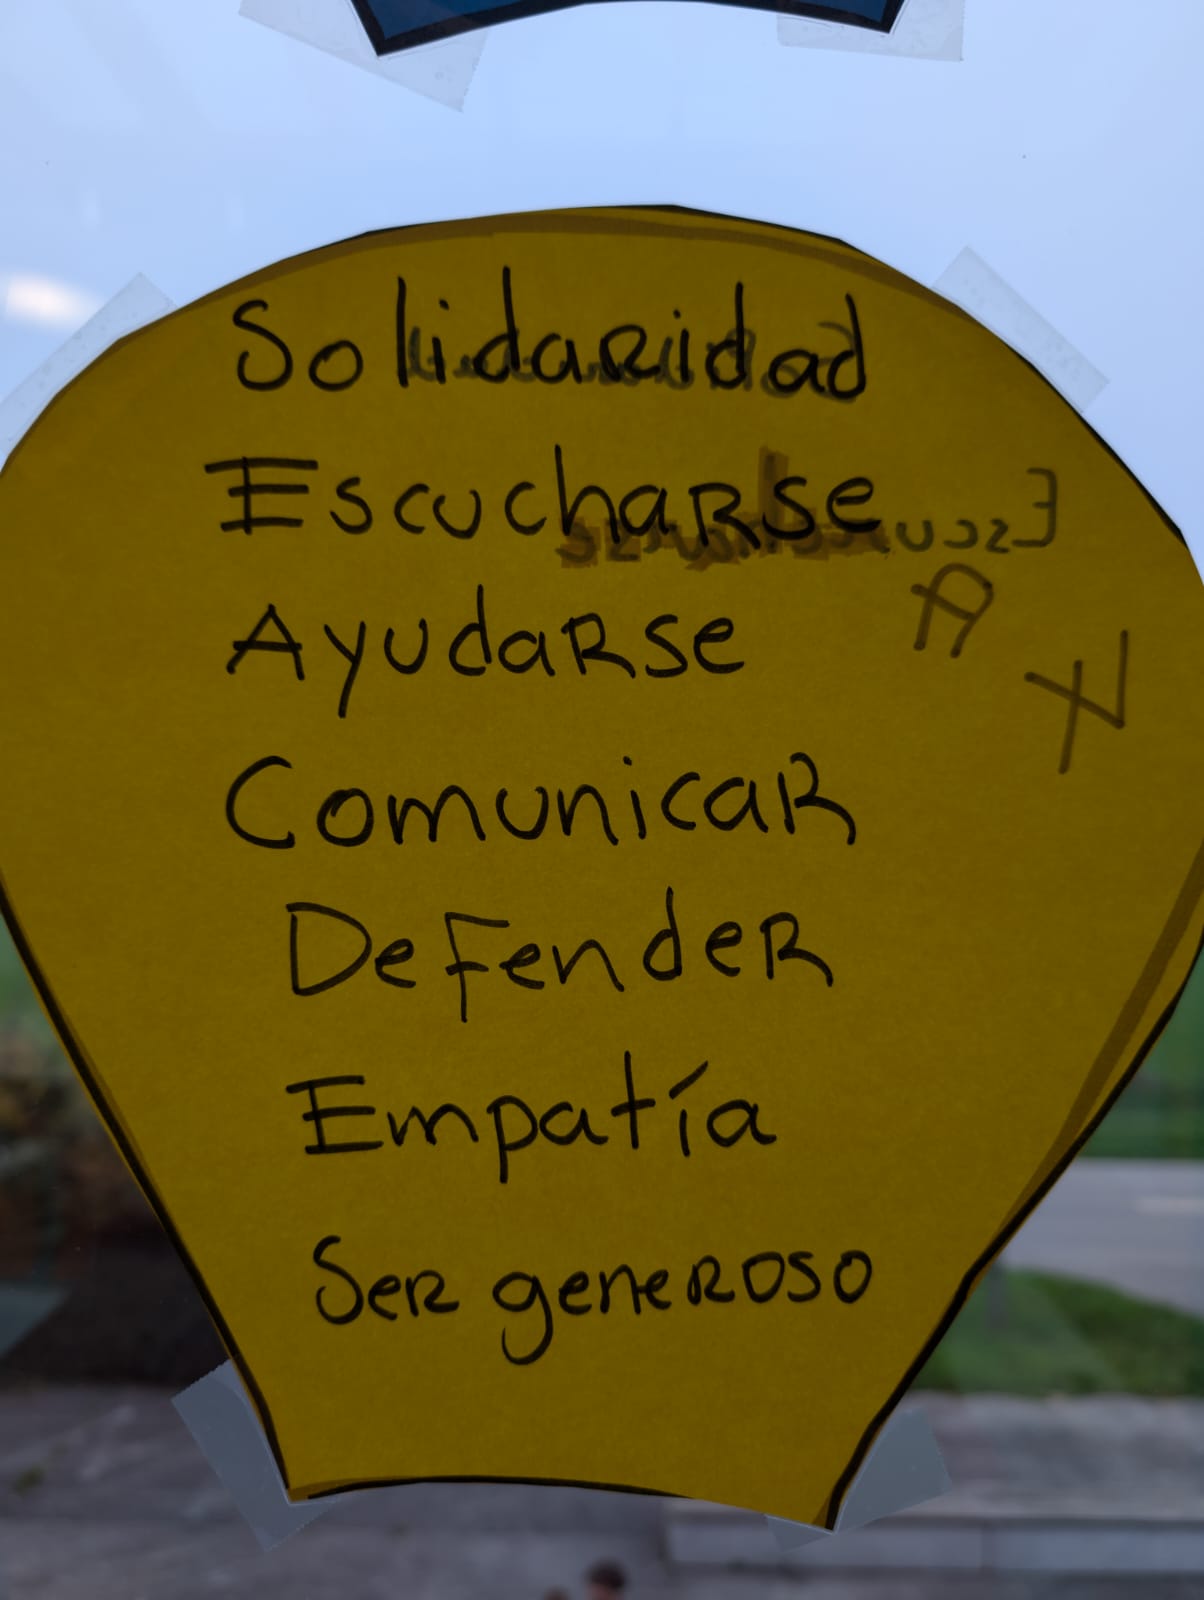 Solidaridad
Escucharse
Ayudarse
Comunicar
Defender
Empatía
Ser generoso